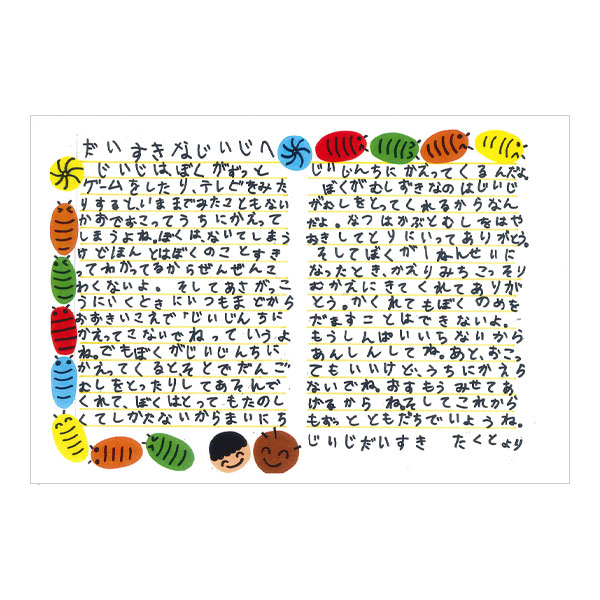 だいすきなじいじへ
じいじは、ぼくがずっと
ゲームをしたり、テレビをみた
りすると、いままでみたこともない
かおでおこってうちにかえって
しまうよね。ぼくは、ないてしまう
けどほんとはぼくのことすき
ってわかってるからぜんぜんこ
わくないよ。そしてあさがっこ
うにいくときにいつもまどから
おおきいこえで「じいじんちに
かえってこないでねっていうよ
ね。でもぼくがじいじんちに
かえってくるとそとでだんご
むしをとったりしてあそんで
くれて、ぼくはとってもたのし
くてしかたないからまいにち
じいじんちにかえってくるんだよ。
ぼくがむしずきなのはじいじ
がむしをとってくれるからなん
だよ。なつはかぶとむしをはや
おきしてとりにいってありがとう。
そしてぼくが1ねんせいに
なったとき、かえりみちこっそり
むかえにきてくれてありが
とう。かくれてもぼくのめを
だますことはできないよ。
もうしんぱいいらないから
あんしんしてね。あと、おこっ
てもいいけど、うちにかえら
ないでね。おすもうみせてあ
げるからね。そしてこれから
もずっとともだちでいようね。
じいじだいすき たくとより